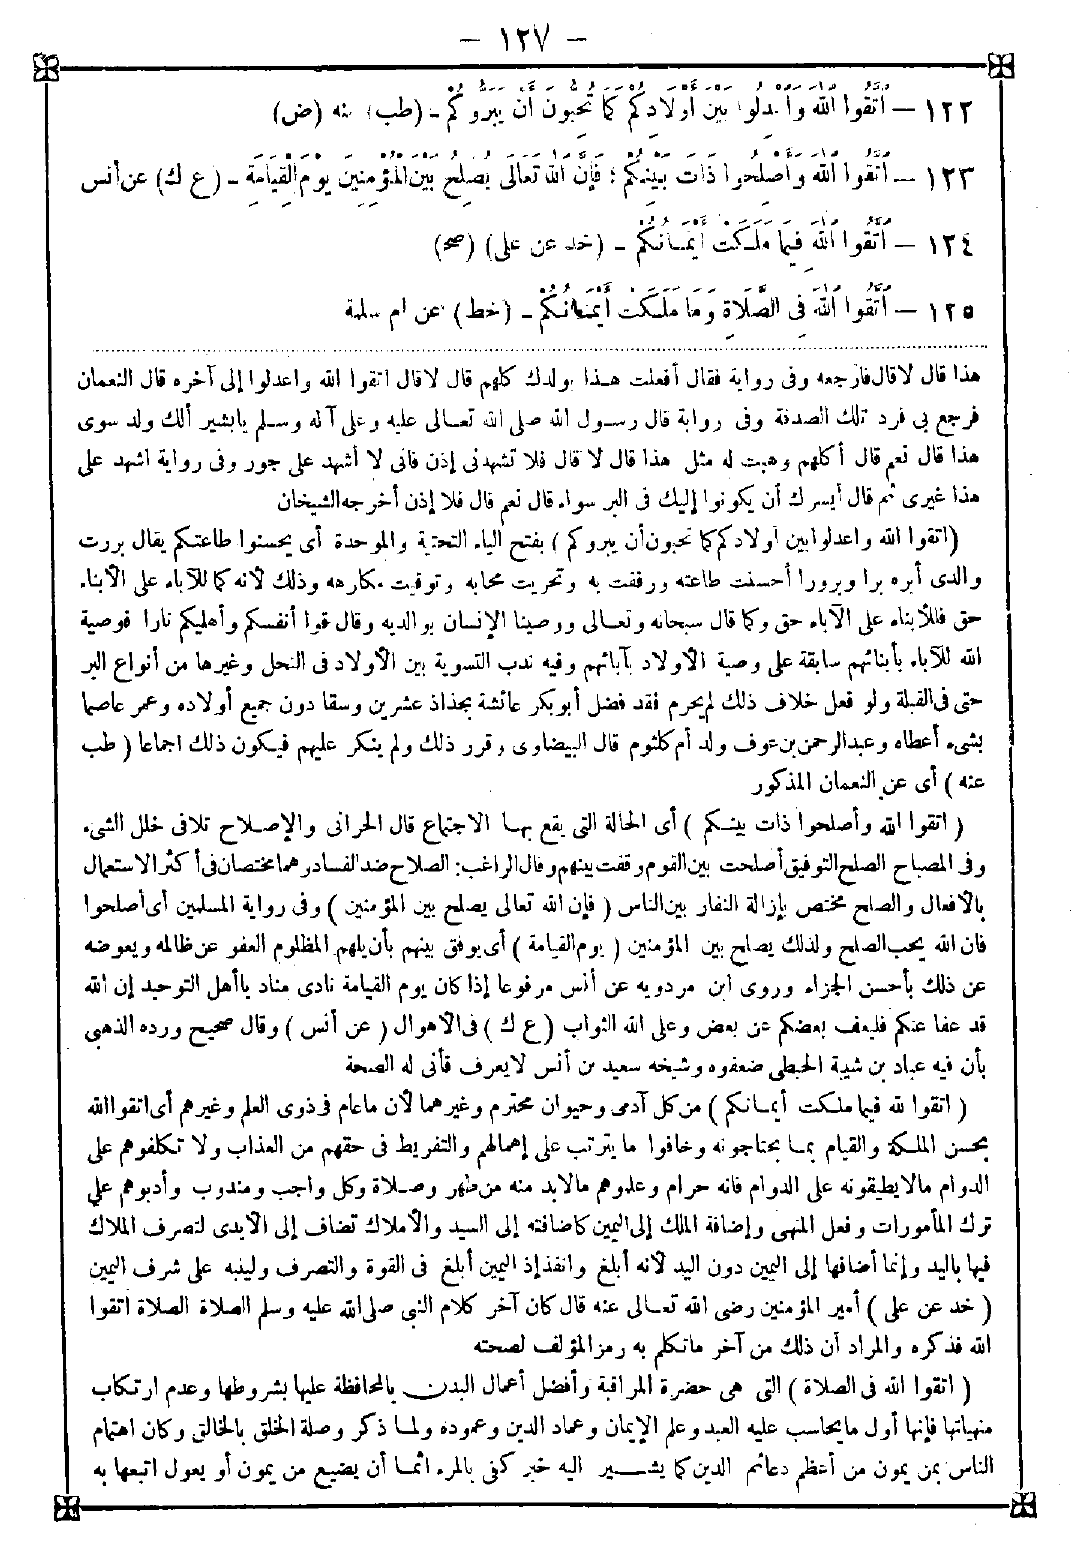 - ١٢٧ -
١٢٢ - اتَّقُوا اللهَ وَاعْدِلُوا بَيْنَ أَوْلَادِكُمْ كَمَا تُحِبُّونَ أَنْ يَبَرُّوكُمْ - (طب) عنه (ض)
١٢٣ - اتَّقُوا اللهَ وَأَصْلِحُوا ذَاتَ بَيْنِكُمْ ؛ فَإِنَّ اللهَ تَعَالَى يُصْلِحُ بَيْنَ الْمُؤْمِنِينَ يَوْمَ الْقِيَامَةِ - (ع ك) عن أنس
١٢٤ - اتَّقُوا اللهَ فِيمَا مَلَكَتْ أَيْمَانُكُمْ - (خد عن على) (صح)
١٢٥ - اتَّقُوا اللهَ فِى الصَّلَاةِ وَمَا مَلَكَتْ أَيْمَانُكُمْ - (خط) عن ام سلمة
هذا قال لا قال فارجعه وفى رواية فقال أفعلت هذا بولدك كلهم قال لا قال اتقوا الله واعدلوا إلى آخره قال النعمان
فرجع بى فرد تلك الصدقة وفى رواية قال رسول الله صلى الله تعالى عليه وعلى آله وسلم يابشير ألك ولد سوى
هذا قال نعم قال أكلهم وهبت له مثل هذا قال لا قال فلا تشهدنى إذن فانى لا أشهد على جور وفى رواية اشهد على
هذا غيرى ثم قال أيسرك أن يكونوا إليك فى البر سواء قال نعم قال فلا إذن أخرجه الشيخان
(اتقوا الله واعدلوا بين أولادكم كما تحبون أن يبروكم) بفتح الياء التحتية والموحدة أى يحسنوا طاعتكم يقال بررت
والدى أبره برا وبرورا أحسنت طاعته ورفقت به وتحريت محابه وتوقيت مكارهه وذلك لأنه كما للآباء على الأبناء
حق فللأبناء على الآباء حق وكما قال سبحانه وتعالى ووصينا الإنسان بوالديه وقال قوا أنفسكم وأهليكم نارا فوصية
الله للآباء بأبنائهم سابقة على وصية الأولاد بآبائهم وفيه ندب التسوية بين الأولاد فى النحل وغيرها من أنواع البر
حتى فى القبلة ولو فعل خلاف ذلك لم يحرم فقد فضل أبوبكر عائشة بجذاذ عشرين وسقا دون جميع أولاده وعمر عاصما
بشىء أعطاه وعبدالرحمن بن عوف ولد أم كلثوم قال البيضاوى وقرر ذلك ولم ينكر عليهم فيكون ذلك اجماعا (طب
عنه) أى عن النعمان المذكور
(اتقوا الله وأصلحوا ذات بينكم) أى الحالة التى يقع بها الاجتماع قال الحرانى والإصلاح تلافى خلل الشىء
وفى المصباح الصلح التوفيق أصلحت بين القوم وفقت بينهم وقال الراغب: الصلاح ضد الفساد وهما مختصان فى أكثر الاستعمال
بالأفعال والصلح مختص بإزالة النفار بين الناس (فإن الله تعالى يصلح بين المؤمنين) وفى رواية المسلمين أى أصلحوا
فان الله يحب الصلح ولذلك يصلح بين المؤمنين (يوم القيامة) أى يوفق بينهم بأن يلهم المظلوم العفو عن ظالمه ويعوضه
عن ذلك بأحسن الجزاء وروى ابن مردويه عن أنس مرفوعا إذا كان يوم القيامة نادى مناد يا أهل التوحيد إن الله
قد عفا عنكم فليعف بعضكم عن بعض وعلى الله الثواب (ع ك) فى الأهوال (عن أنس) وقال صحيح ورده الذهبى
بأن فيه عباد بن شيبة الحبطى ضعفوه وشيخه سعيد بن أنس لايعرف فأنى له الصحة
(اتقوا الله فيما ملكت أيمانكم) من كل آدمى وحيوان محترم وغيرهما لأن ما عام فى ذوى العلم وغيرهم أى اتقوا الله
بحسن الملكة والقيام بما يحتاجونه وخافوا ما يترتب على إهمالهم والتفريط فى حقهم من العذاب ولا تكلفوهم على
الدوام مالايطيقونه على الدوام فانه حرام وعلموهم مالابد منه من طهر وصلاة وكل واجب ومندوب وأدبوهم على
ترك المأمورات وفعل المنهى وإضافة الملك إلى اليمين كاضافته إلى السيد والأملاك تضاف إلى الأيدى لتصرف الملاك
فيها باليد وإنما أضافها إلى اليمين دون اليد لأنه أبلغ وانفذ إذ اليمين أبلغ فى القوة والتصرف ولينبه على شرف اليمين
(خد عن على) أمير المؤمنين رضى الله تعالى عنه قال كان آخر كلام النبى صلى الله عليه وسلم الصلاة الصلاة اتقوا
الله فذكره والمراد أن ذلك من آخر ماتكلم به رمز المؤلف لصحته
(اتقوا الله فى الصلاة) التى هى حضرة المراقبة وأفضل أعمال البدن بالمحافظة عليها بشروطها وعدم ارتكاب
منهياتها فإنها أول مايحاسب عليه العبد وعلم الإيمان وعماد الدين وعموده ولما ذكر وصلة الخلق بالخالق وكان اهتمام
الناس بمن يمون من أعظم دعائم الدين كما يشير اليه خبر كفى بالمرء اثما أن يضيع من يمون أو يعول اتبعها به